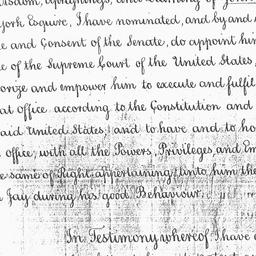 Wisdom, Uprightness, and Learning of John
York Esquire, I have nominated, and by and
and Consent of the Senate, do appoint him
of the Supreme Court of the United States,
and empower him to execute and fulfil
at office according to the Constitution and
said United States; and to have and to ho
office, with all the Powers, Privileges and Em
e same of Right appertaining unto him the
Jay during his good Behaviour.
In Testimony whereof I have